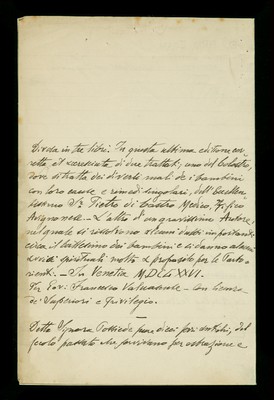 Divisa in tre libri. In questa ultima editione cor-
retta, et accresciuta di due trattati; uno del Colostro,
dove si tratta dei diversi mali de i bambini
con loro cause e rimedi singolari, dell' Eccellen-
tissimo Sr. Pietro di Medico, Fisico
Avignonese — L'altro d'un gravissimo Autore,
nel quale si risolvono alcuni dubbi importanti,
circa il battesimo dei bambini e si danno alcuni
avvisi spirituali molto a proposito per le Parto-
rienti. — In Venetia MDCLXXVI.
Per Gio: Francesco Valvasense — Con licenza
de' Superiori e Privilegio.
Detta Signora Possiede pure dieci del
secolo passato che servivano per estrazione e